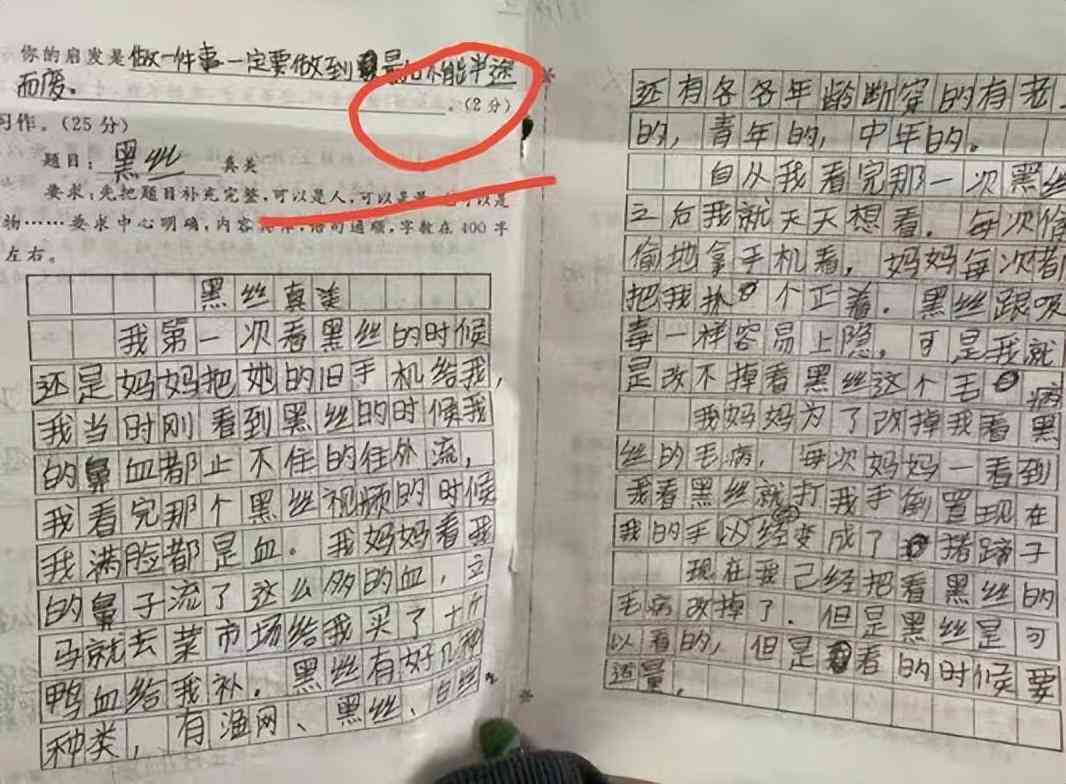 你的启发是做一件事一定要做到最后不能半途
而废。
。(2分)
习作。(25分)
题目：黑丝 真美
要求：先把题目补充完整，可以是人，可以是
物……要求中心明确，内容 语句通顺，字数在400字
左右。
黑丝真美
我第一次看黑丝的时候
还是妈妈把她的旧手机给我，
我当时刚看到黑丝的时候我
的鼻血都止不住的往外流，
我看完那个黑丝视频的时候
我满脸都是血。我妈妈看我
的鼻子流了这么多的血，立
马就去菜市场给我买了十斤
鸭血给我补。黑丝有好几种
种类，有渔网、黑丝、白丝
还有各各年龄断穿的有老
的，青年的，中年的。
自从我看完那一次黑丝
之后我就天天想看。每次偷
偷地拿手机看，妈妈每次都
把我抓个正着。黑丝跟吸
毒一样容易上隐，可是我就
是改不掉看黑丝这个毛病
我妈妈为了改掉我看黑
丝的毛病，每次妈妈一看到
我看黑丝就打我手倒置现在
我的手以经变成了猪蹄子
现在我己经把看黑丝的
毛病改掉了．但是黑丝是可
以看的，但是看的时候要
适量．